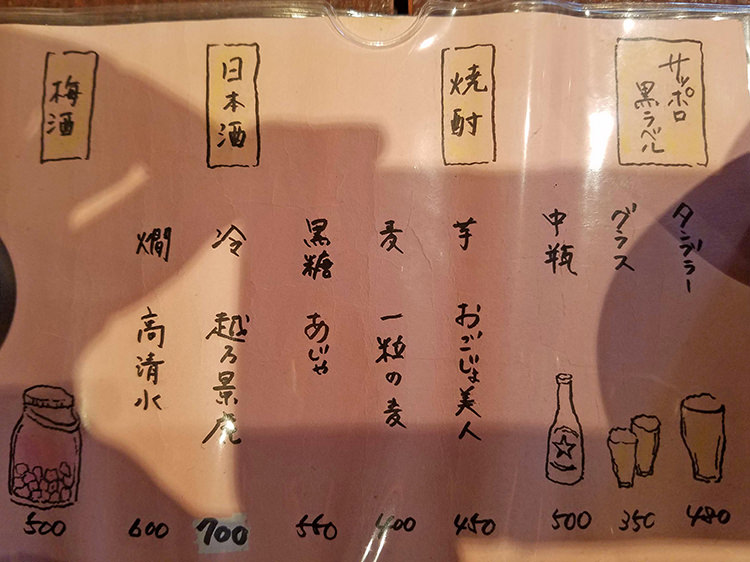 サッポロ
黒ラベル
タンブラー
480
グラス
350
中瓶
500
焼酎
芋 おごじょ美人
450
麦 一粒の麦
400
黒糖 あじゃ
550
日本酒
冷 越乃景虎
700
燗 高清水
600
梅酒
500